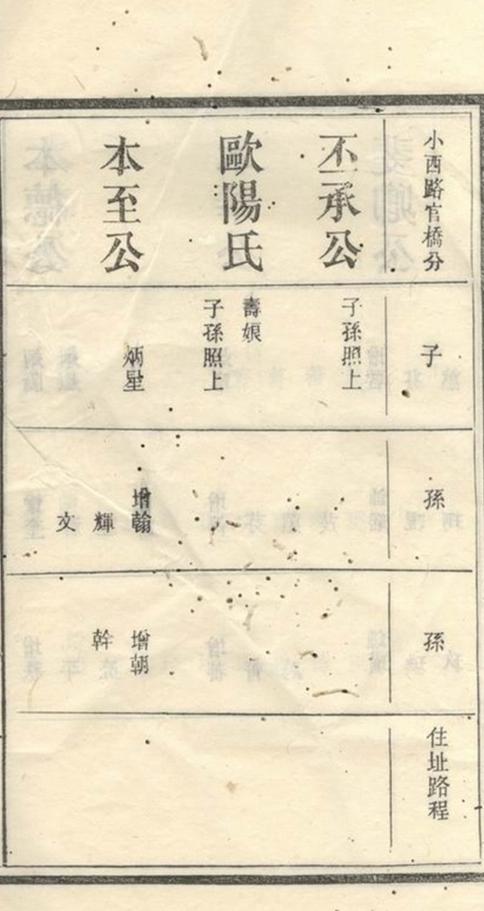 小西路官橋分
子
孫
孫
住址路程
丕承公
子孫照上
歐陽氏
壽娘
子孫照上
本至公
炳星
增翰
輝
文
增朝
幹